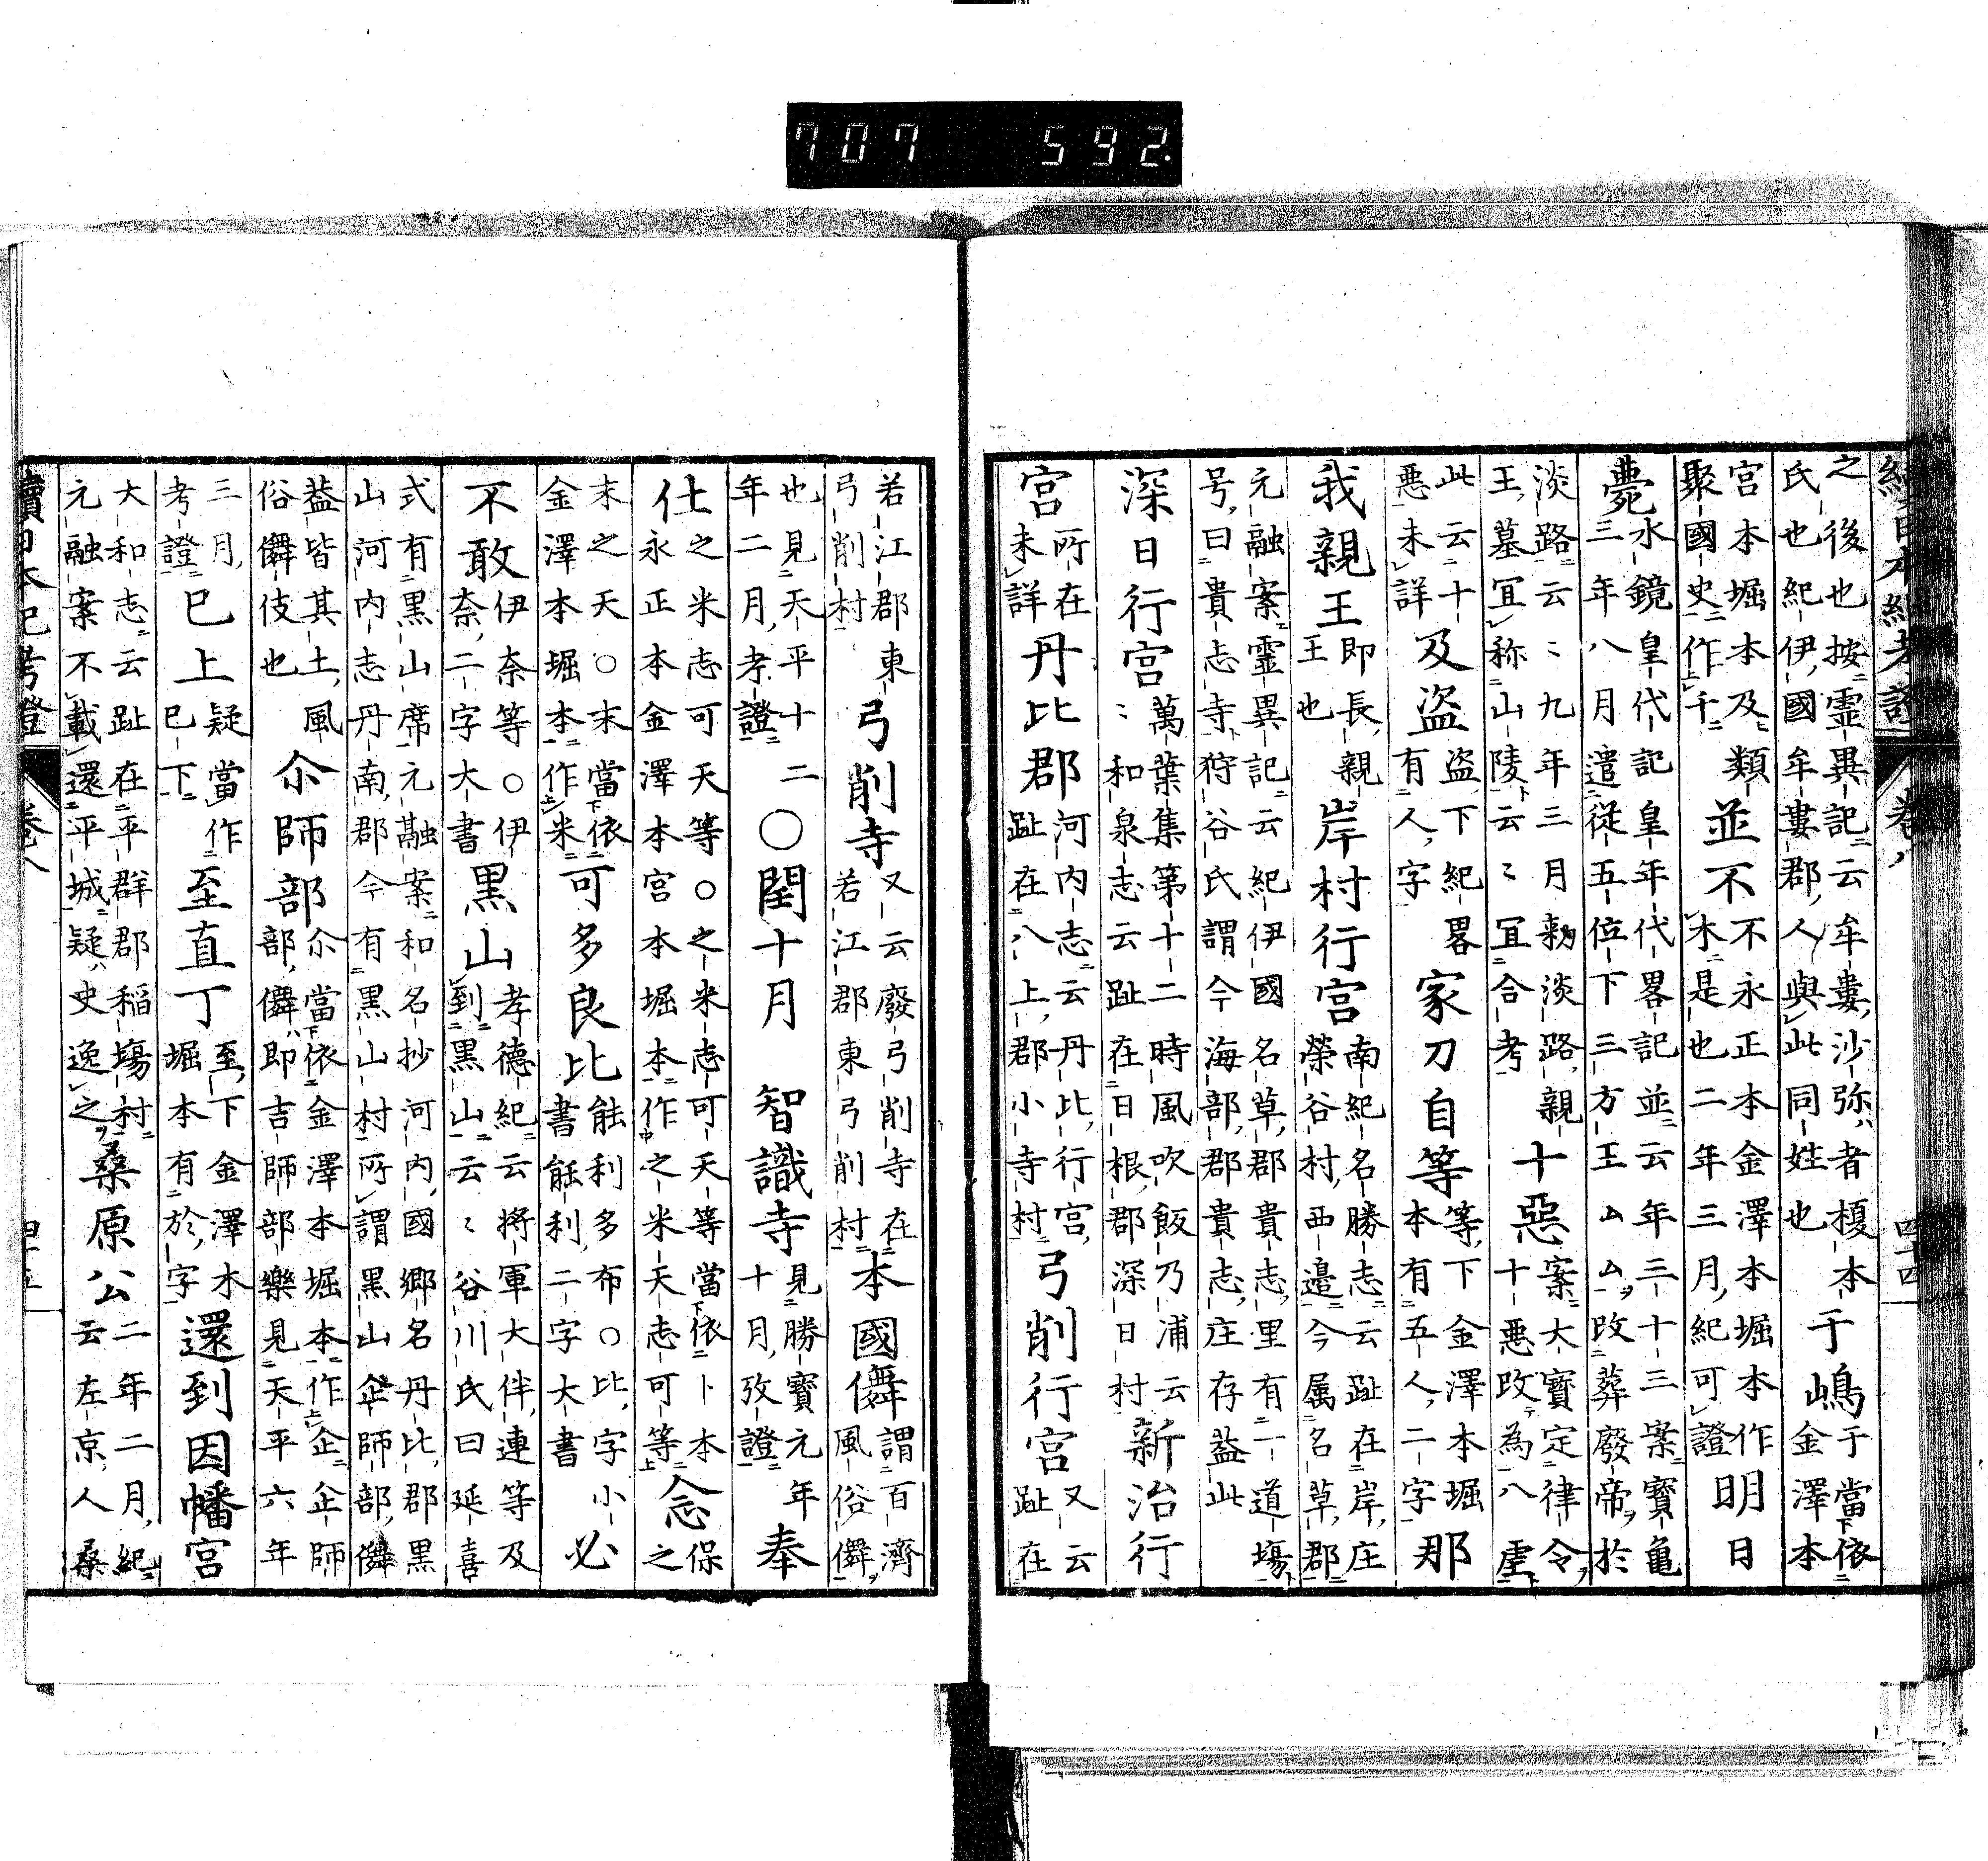 707 592.
續日本紀考證 卷八 四十四
之後也按靈異記云牟婁沙弥者榎本
氏也紀伊國牟婁郡人與此同姓也
于嶋
于當依
金澤本
宮本堀本及類
聚國史作千
並不
不永正本金澤本堀本作
木是也二年三月紀可證
明日
薨
水鏡皇代記皇年代畧記並云年三十三案寶亀
三年八月遣從五位下三方王厶厶改葬廢帝於
淡路云〻九年三月勅淡路親
王墓冝称山陵云〻冝合考
十惡
案大寶定律令
十悪改為八虐
此云十
悪未詳
及盗
盗下紀畧
有人字
家刀自等
等下金澤本堀
本有五人二字
那
我親王
即長親
王也
岸村行宮
南紀名勝志云趾在岸庄
榮谷村西邉今属名草郡
元融案靈異記云紀伊國名草郡貴志里有一道場
号曰貴志寺狩谷氏謂今海部郡貴志庄存葢此
深日行宮
萬葉集第十二時風吹飯乃浦云
〻和泉志云趾在日根郡深日村
新治行
宮
所在
未詳
丹比郡
河内志云丹比行宮
趾在八上郡小寺村
弓削行宮
又云
趾在
若江郡東
弓削村
弓削寺
又云廢弓削寺在
若江郡東弓削村
本國儛
謂百濟
風俗儛
也見天平十二
年二月孝證
○閏十月 智識寺
見勝寶元年
十月攷證
奉
仕
之米志可天等○之米志可天等當依卜本
永正本金澤本宮本堀本作之米天志可等
念
保
之
末之天○末當依
金澤本堀本作米
可多良比
能利多布○比字小
書能利二字大書
必
不敢
伊奈等○伊
奈二字大書
黒山
孝德紀云將軍大伴連等及
到黒山云〻谷川氏曰延喜
式有黒山席元融案和名抄河内國郷名丹比郡黒
山河内志丹南郡今有黒山村所謂黒山企師部儛
葢皆其土風
俗儛伎也
尒師部
尒當依金澤本堀本作企企師
部儛即吉師部樂見天平六年
三月
考證
巳上
疑當作
巳下
至直丁
至下金澤本
堀本有於字
還到因幡宮
大和志云趾在平群郡稲塲村
元融案不載還平城疑史逸之
桑原公
二年二月紀
云左京人桑
續日本紀考證 卷八 四十五